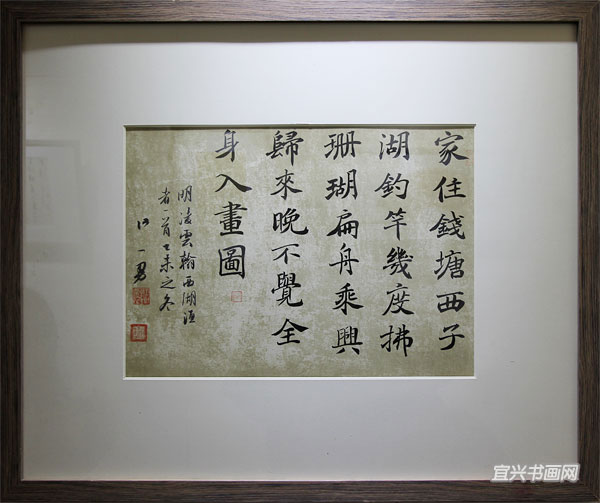 家住錢塘西子
湖釣竿幾度拂
珊瑚扁舟乘興
歸來晚不覺全
身入畫圖
明凌雲翰西湖漁
者一首乙未之冬
一勇
宜兴书画网